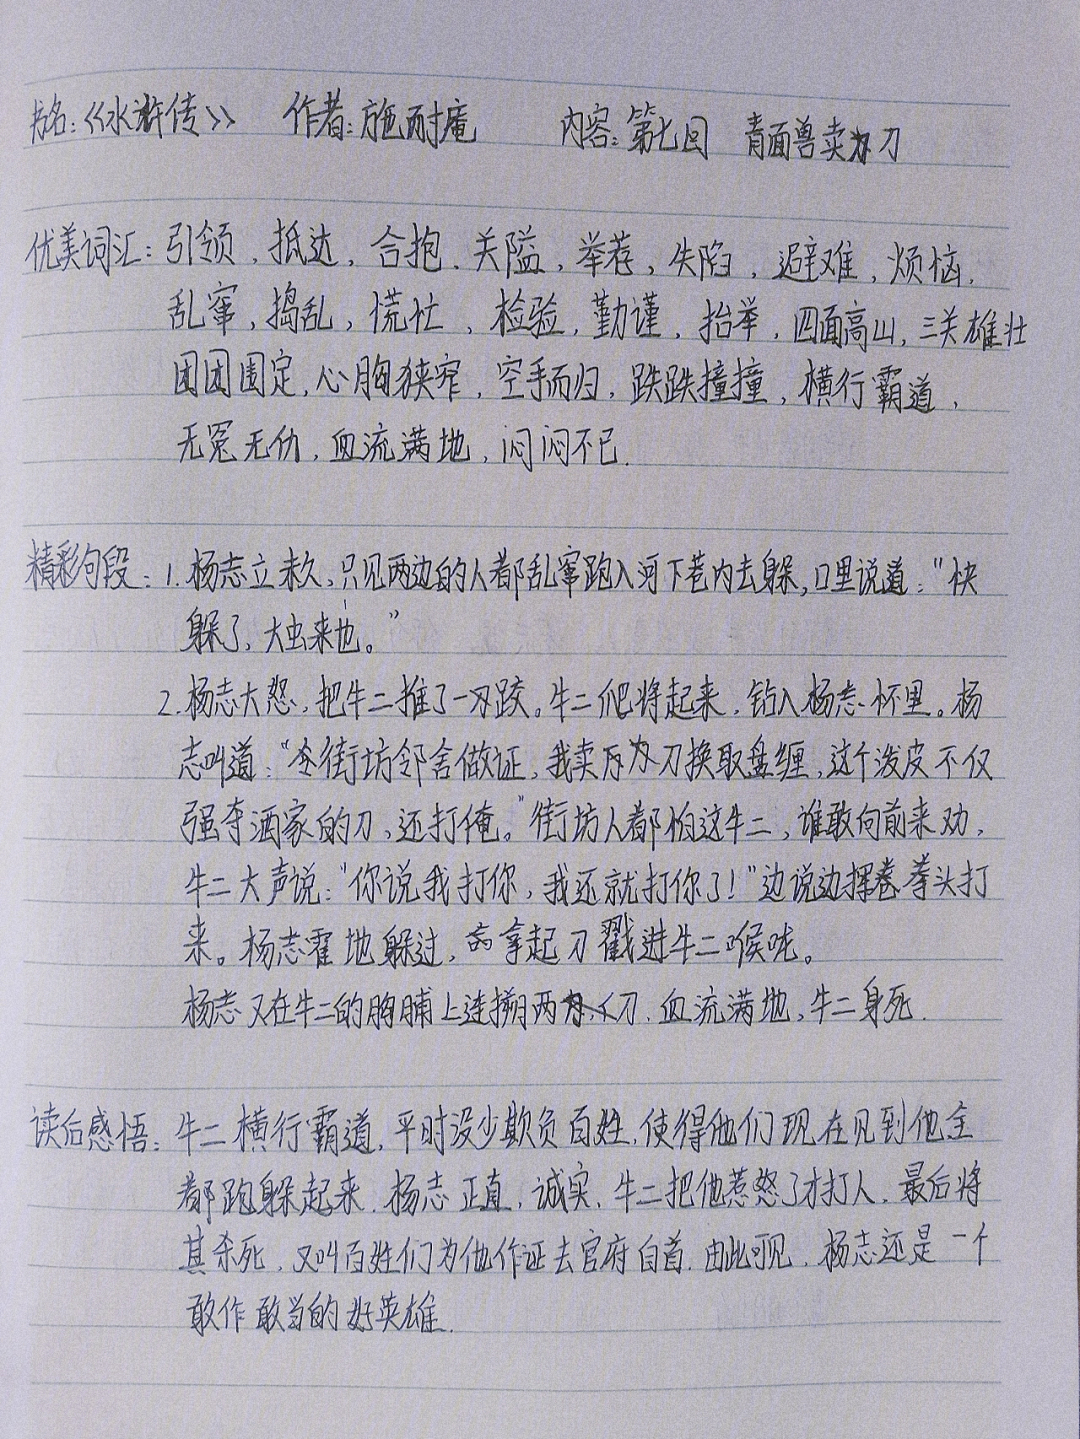 书名:《水浒传》 作者:施耐庵 内容:第七回 青面兽卖刀
优美词汇:引领,抵达,合抱,关隘,举荐,失陷,避难,烦恼,
乱窜,捣乱,慌忙,检验,勤谨,抬举,四面高山,三关雄壮
团团围定,心胸狭窄,空手而归,跌跌撞撞,横行霸道,
无冤无仇,血流满地,闷闷不已.
精彩句段:1.杨志立未久,只见两边的人都乱窜跑入河下巷内去躲,口里说道:“快
躲了,大虫来也。”
2.杨志大怒,把牛二推了一跤。牛二爬将起来,钻入杨志怀里。杨
志叫道:“令街坊邻舍做证,我卖刀换取盘缠,这个泼皮不仅
强夺洒家的刀,还打俺。”街坊人都怕这牛二,谁敢向前来劝,
牛二大声说:“你说我打你,我还就打你了!”边说边挥拳头打
来。杨志霍地躲过,拿起刀戳进牛二喉咙。
杨志又在牛二的胸脯上连搠两刀,血流满地,牛二身死.
读后感悟:牛二横行霸道,平时没少欺负百姓,使得他们现在见到他全
都跑躲起来.杨志正直,诚实,牛二把他惹怒了才打人,最后将
其杀死,又叫百姓们为他作证去官府自首.由此可见,杨志还是一个
敢作敢当的好英雄.